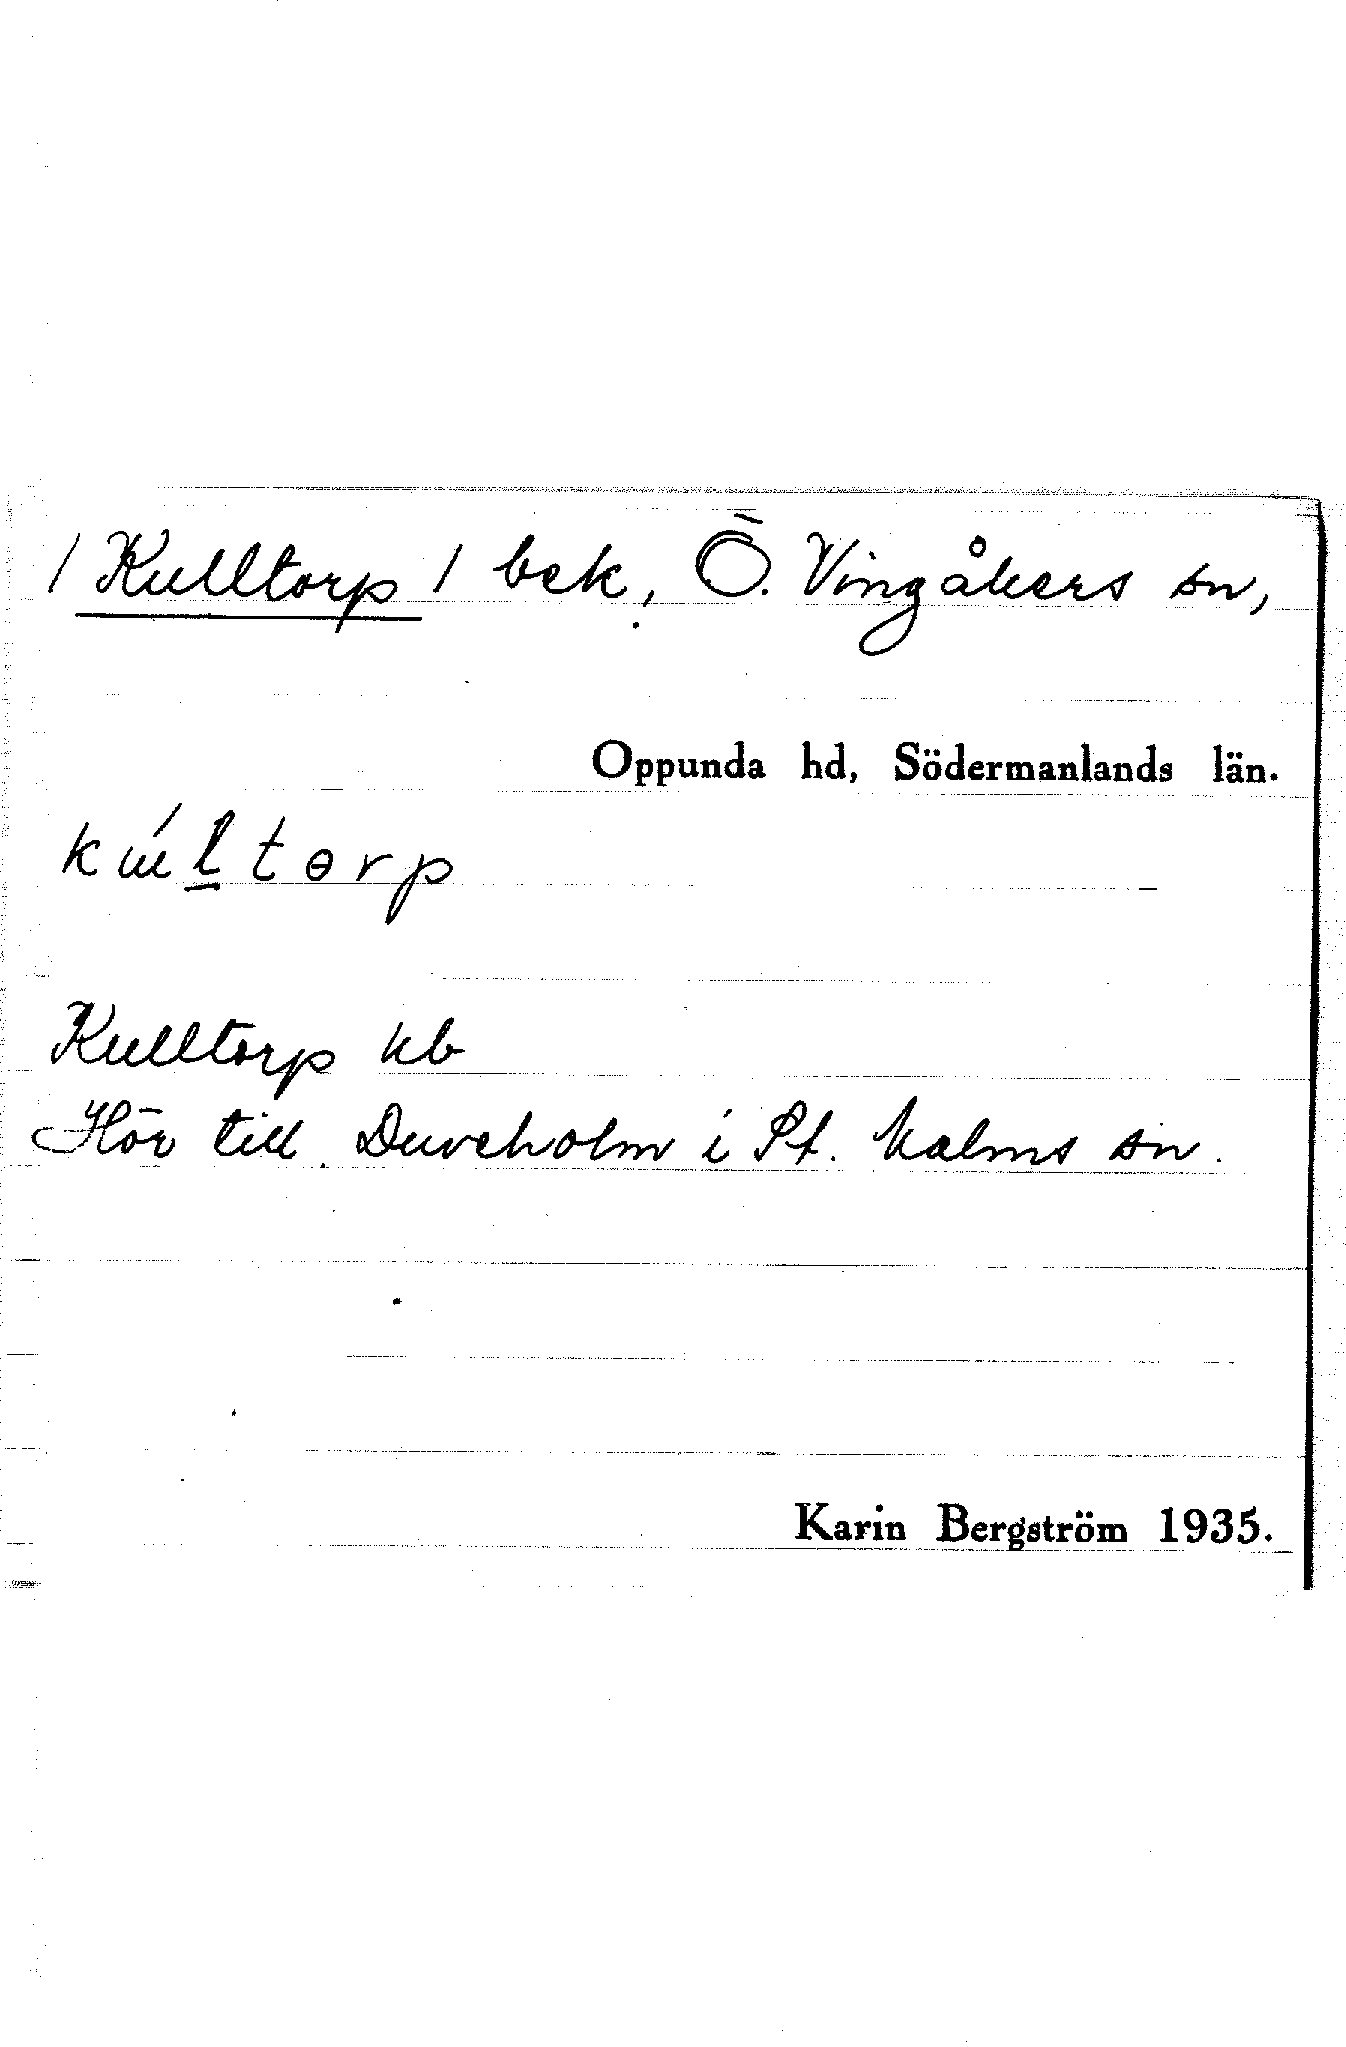 / Kulltorp / bek, Ö. Vingåkers sn,
Oppunda hd, Södermanlands län.
kúltɵrp
Kulltorp kb
Hör till Duveholm i St. Malms sn.
Karin Bergström 1935.